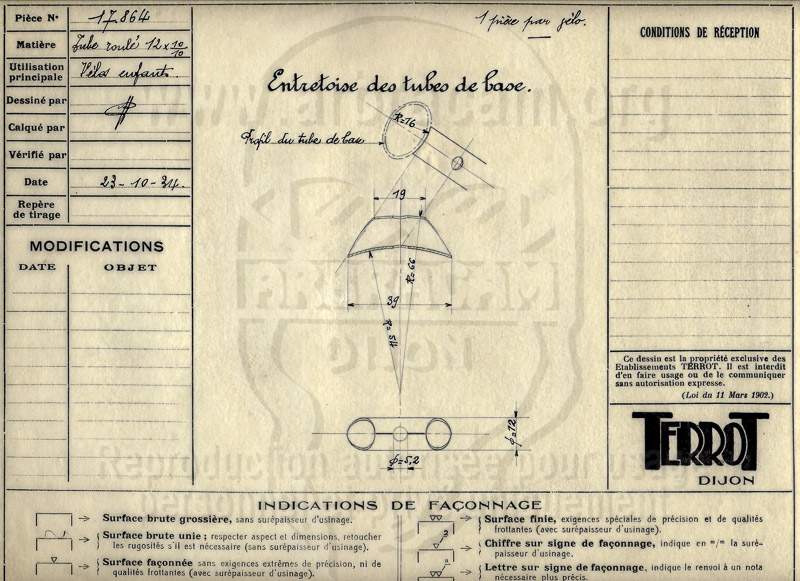 Pièce N° 17.864
Matière Tube roulé 12 x 10/10
Utilisation principale Vélos enfants.
Dessiné par
Calqué par
Vérifié par
Date 23-10-34.
Repère de tirage
MODIFICATIONS
DATE OBJET
1 pièce par vélo.
Entretoise des tubes de base.
R=16
Profil du tube de base
19
R=66
39
R=115
φ=12
φ=5,2
CONDITIONS DE RÉCEPTION
Ce dessin est la propriété exclusive des
Etablissements TERROT. Il est interdit
d'en faire usage ou de le communiquer
sans autorisation expresse.
(Loi du 11 Mars 1902.)
TERROT
DIJON
INDICATIONS DE FAÇONNAGE
Surface brute grossière, sans surépaisseur d'usinage.
Surface brute unie ; respecter aspect et dimensions, retoucher
les rugosités s'il est nécessaire (sans surépaisseur d'usinage).
Surface façonnée sans exigences extrêmes de précision, ni de
qualités frottantes (avec surépaisseur d'usinage).
Surface finie, exigences spéciales de précision et de qualités
frottantes (avec surépaisseur d'usinage).
3
Chiffre sur signe de façonnage, indique en m/m la suré-
paisseur d'usinage.
a
Lettre sur signe de façonnage, indique le renvoi à un nota
nécessaire plus précis.
DIJON
Reproduction autorisée pour usage